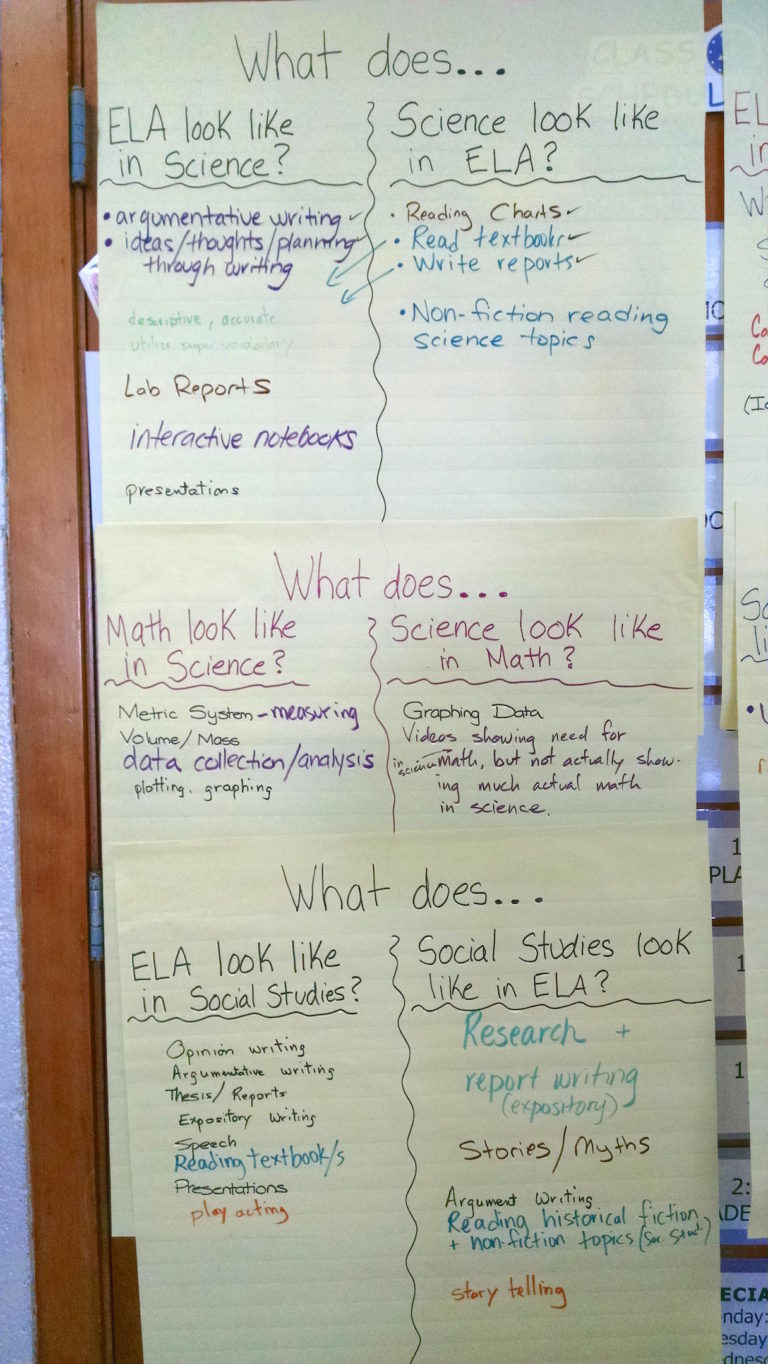 What does...
ELA look like
in Science?
• argumentative writing ✓
• ideas/thoughts/planning ✓
through writing
descriptive, accurate
utilize proper vocabulary
Lab Reports
interactive notebooks
presentations
Science look like
in ELA?
• Reading Charts ✓
• Read textbooks ✓
• Write reports ✓
• Non-fiction reading
science topics
What does...
Math look like
in Science?
Metric System - measuring
Volume/Mass
data collection/analysis
plotting, graphing
Science look like
in Math?
Graphing Data
Videos showing need for
in science math, but not actually show-
ing much actual math
in science.
What does...
ELA look like
in Social Studies?
Opinion writing
Argumentative writing
Thesis/Reports
Expository Writing
Speech
Reading textbook/s
Presentations
play acting
Social Studies look
like in ELA?
Research +
report writing
(expository)
Stories/Myths
Argument Writing
Reading historical fiction
+ non-fiction topics (Soc. Stud.)
story telling
CLASS